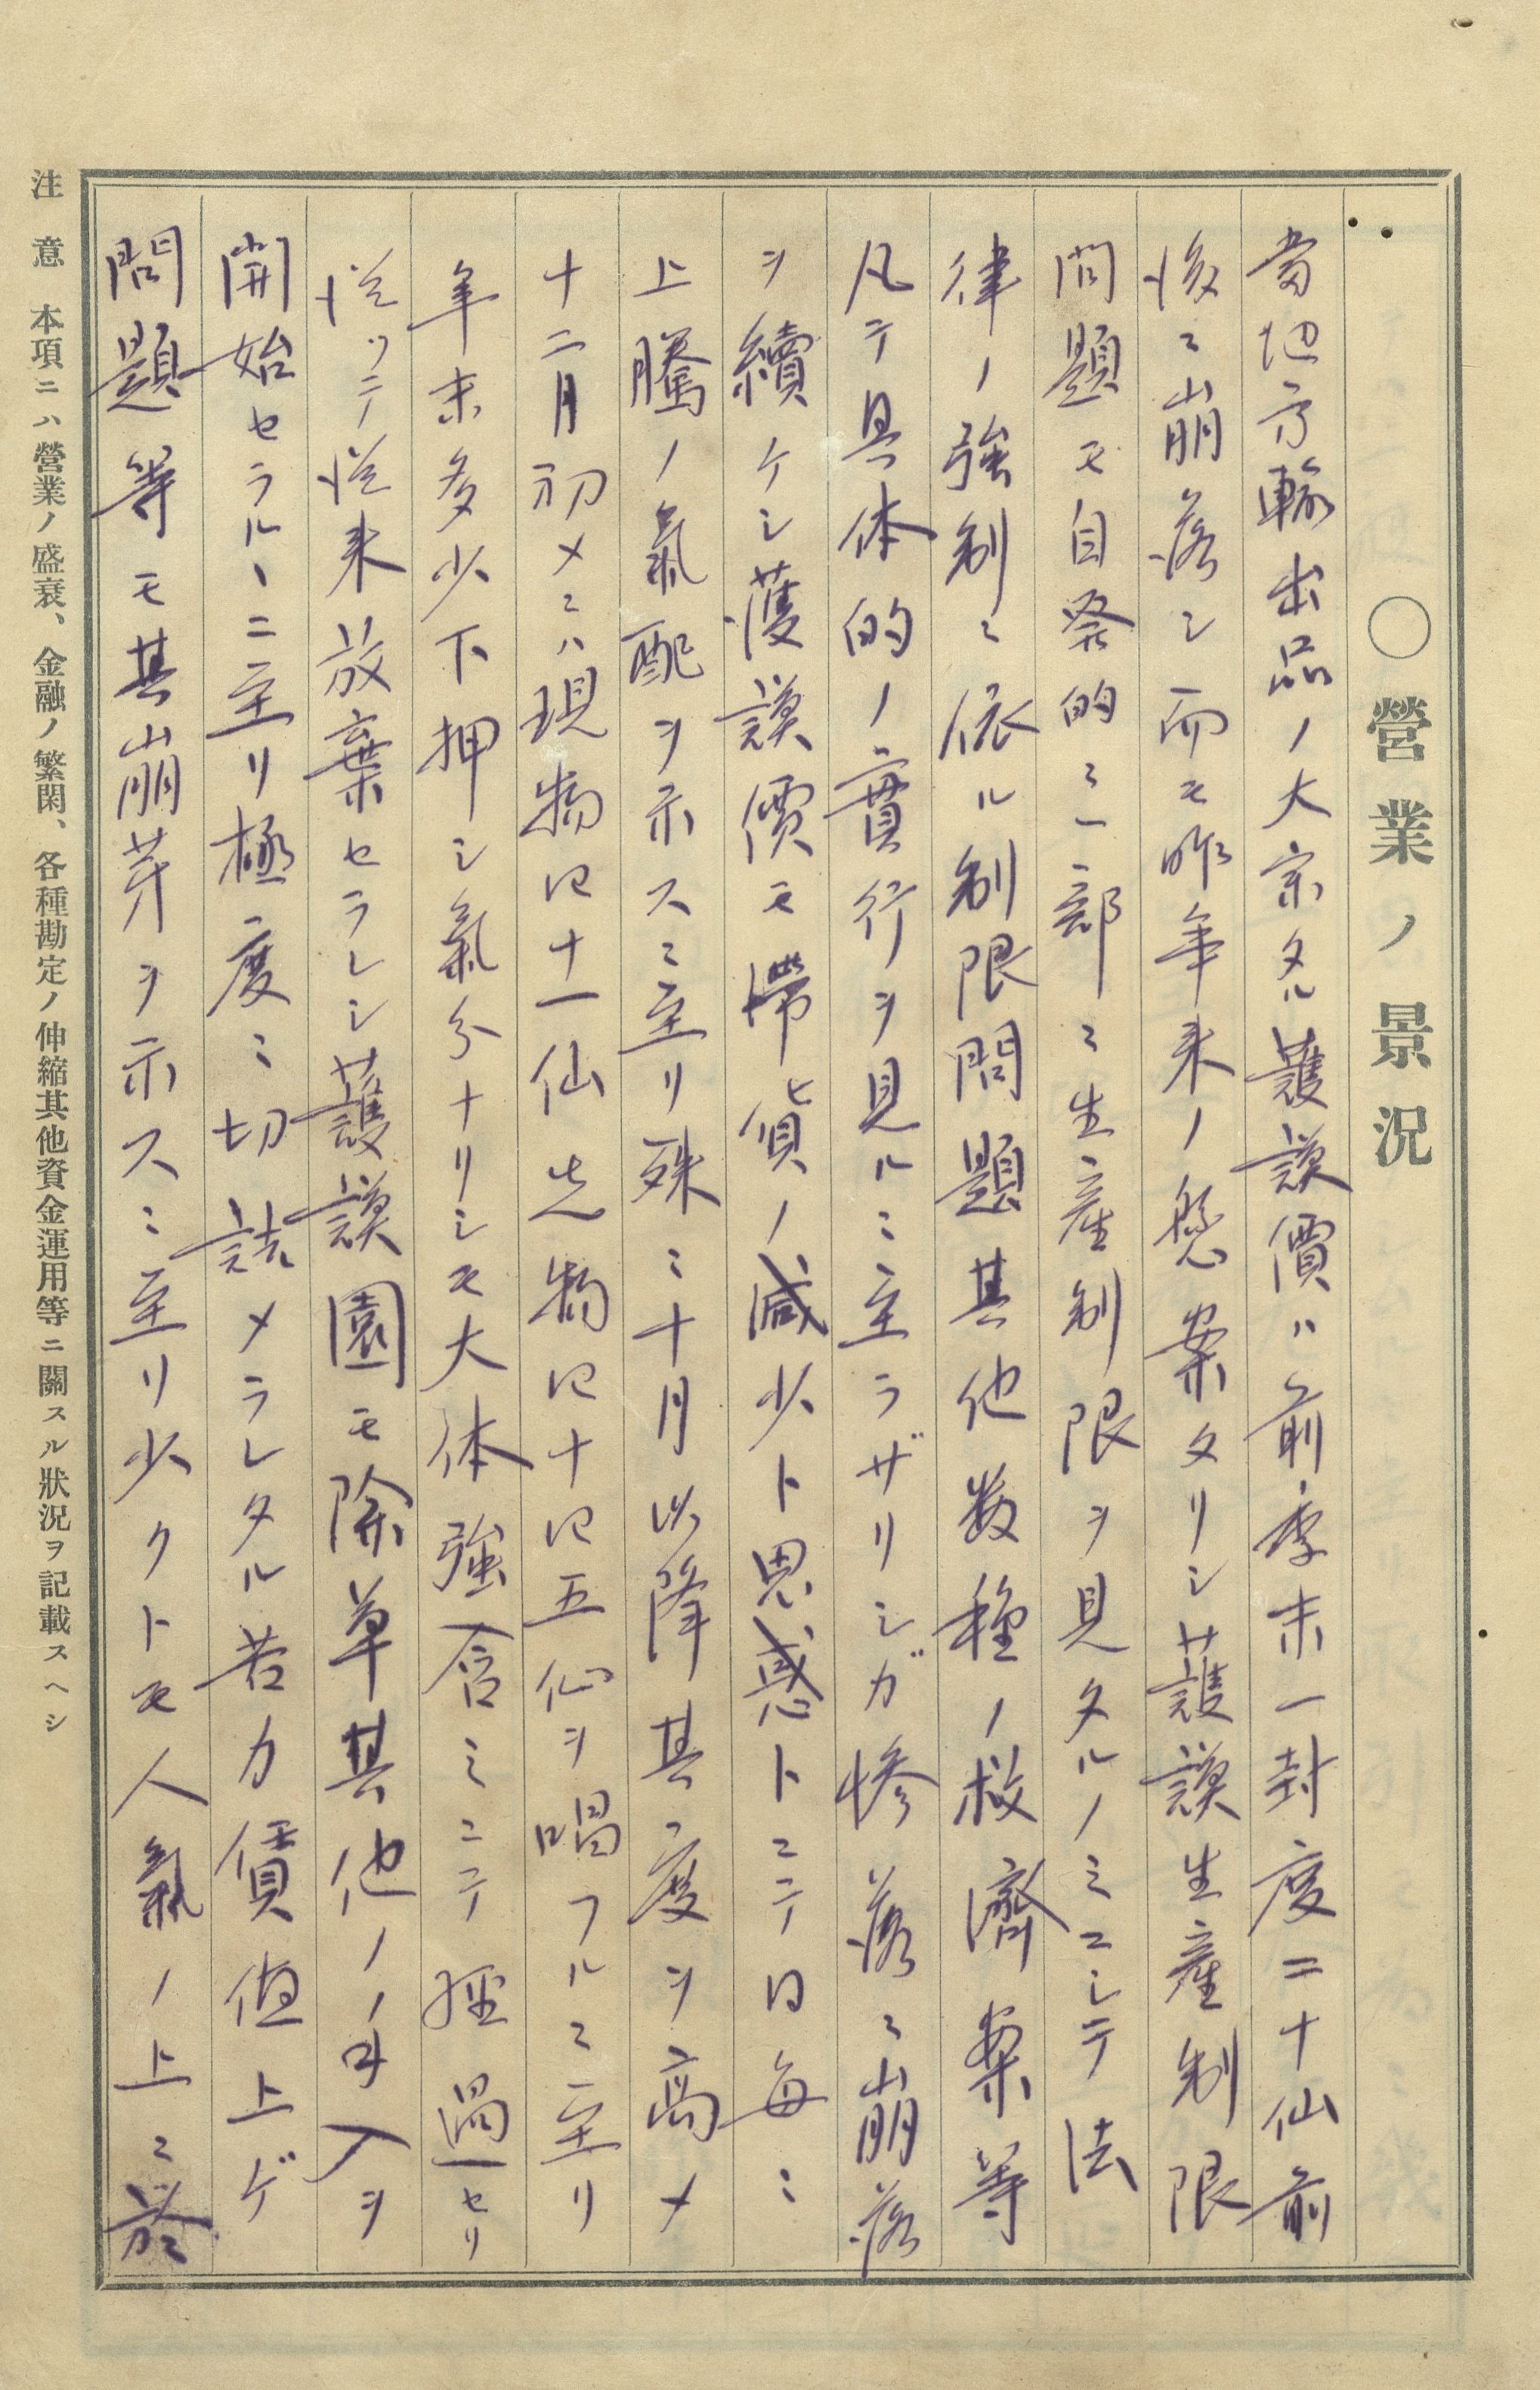 〇營業ノ景況
當地方輸出品ノ大宗タル護謨價ハ前季末一封度二十仙前
後ニ崩落シ而モ昨年来ノ懸案タリシ護謨生産制限
問題モ自発的ニ一部ニ生産制限ヲ見タルノミニシテ法
律ノ強制ニ依ル制限問題其他数種ノ救濟案等
凡テ具体的ノ實行ヲ見ルニ至ラザリシガ惨落ニ崩落
ヲ續ケシ護謨價モ滞貨ノ減少ト思惑トニテ日毎ニ
上騰ノ氣配ヲ示スニ至リ殊ニ十月以降其度ヲ高メ
十二月初メニハ現物ニ十一仙先物ニ十五仙ヲ唱フルニ至リ
年末多少下押シ氣分ナリシモ大体強含ミニテ經過セリ
従ッテ従来放棄セラレシ護謨園モ除草其他ノ手入ヲ
開始セラルヽニ至リ極度ニ切詰メラレタル苦力賃値上ゲ
問題等モ其崩芽ヲ示スニ至リ少クトモ人氣ノ上ニ於
注意 本項ニハ營業ノ盛衰、金融ノ繁閑、各種勘定ノ伸縮其他資金運用等ニ關スル狀況ヲ記載スヘシ